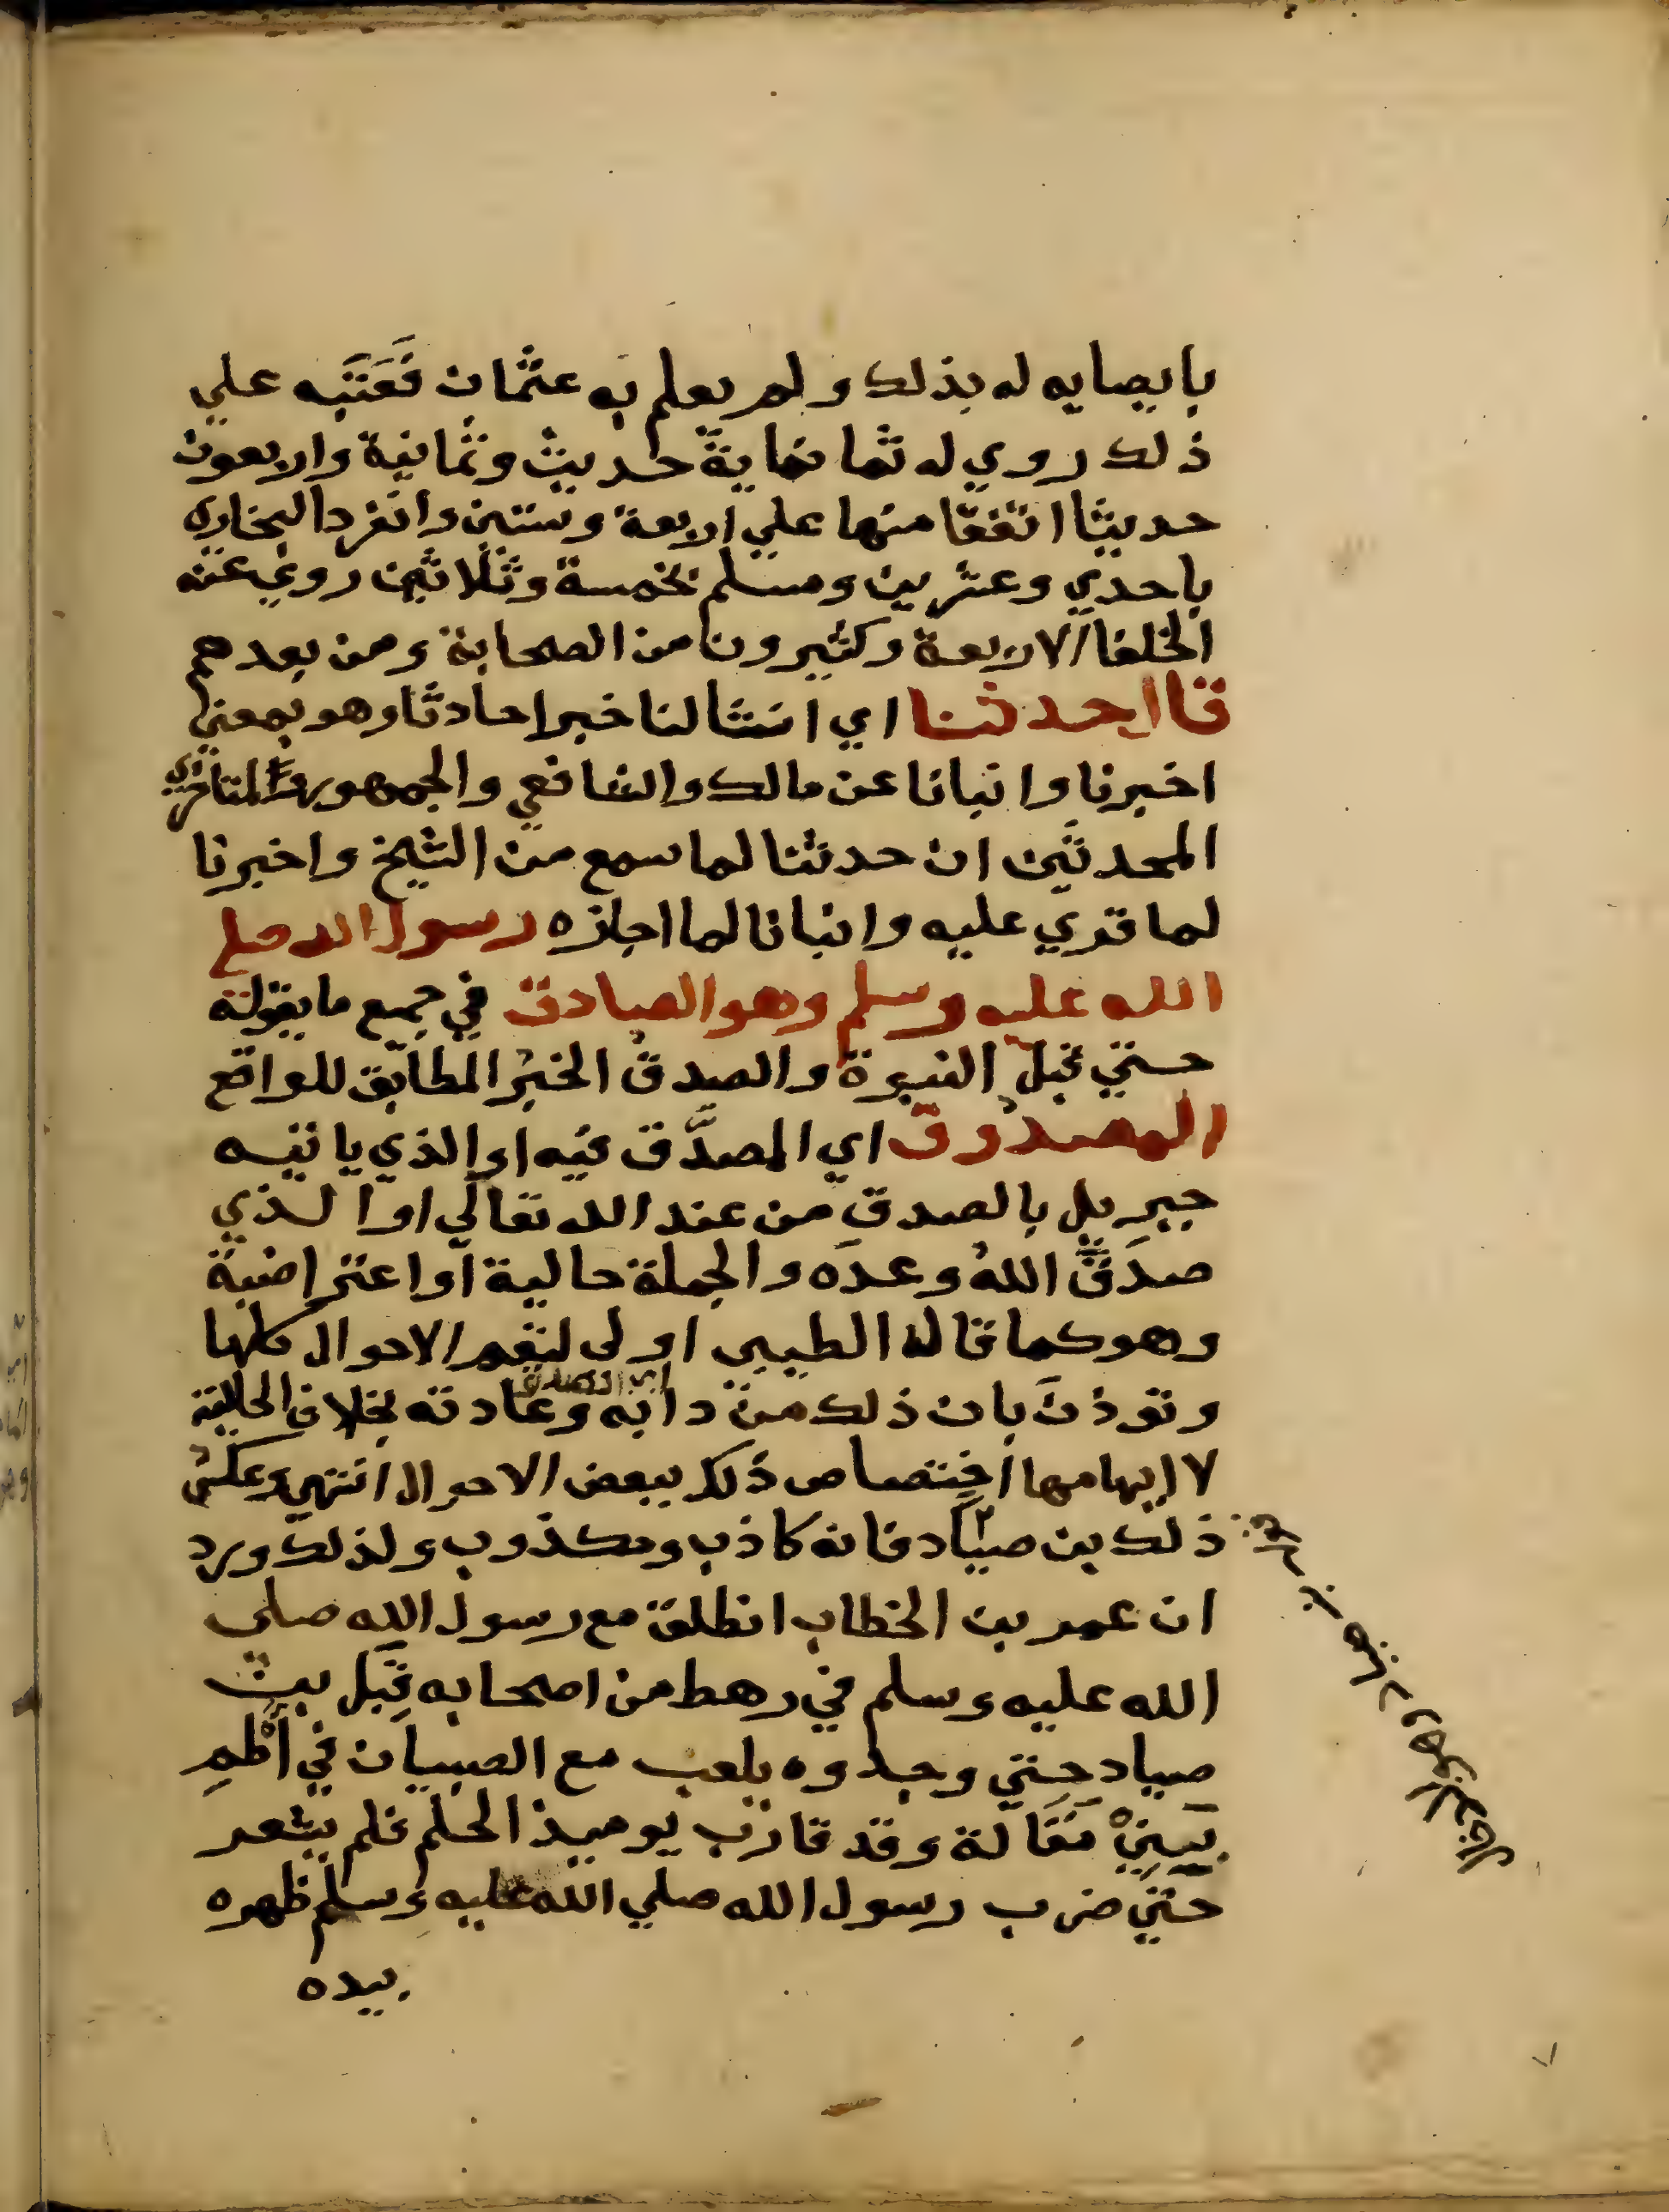 بايصايه له بذلك ولم يعلم به عثمان فَعَتَبَه علي
ذلك روي له ثمانماية حديث وثمانية واربعون
حديثا اتفقا منها علي اربعة وستين وانفرد البخاري
باحدي وعشرين ومسلم بخمسة وثلاثين روي عنه
الخلفا الاربعة وكثيرون من الصحابة ومن بعدهم
قال حدثنا اي انشا لنا خبرا حادثا وهو بمعني
اخبرنا وانبانا عن مالك والشافعي والجمهور المتاخرين
المحدثين ان حدثنا لما سمع من الشيخ واخبرنا
لما قري عليه وانبانا لما اجازه رسول الله صلي
الله عليه وسلم وهو الصادق في جميع ما يقوله
حتي قبل النبوة والصدق الخبر المطابق للواقع
المصدوق اي المصدَّق فيه او الذي ياتيه
جبريل بالصدق من عند الله تعالي او الذي
صدَقَ اللهُ وعدَه والجملة حالية او اعتراضية
وهو كما قاله الطيبي اولى لتعم الاحوال كلها
وتوذن بان ذلك من دابه وعادته بخلاف الحالية
لا ايهامها اختصاص ذلك ببعض الاحوال انتهي وعكس
ذلك بن صيَّاد فانه كاذب ومكذوب ولذلك ورد
ان عمر بن الخطاب انطلق مع رسول الله صلي
الله عليه وسلم في رهط من اصحابه قِبَل بيت
صياد حتي وجدوه يلعب مع الصبيان في أُطُمِ
بَيِنيْ مَقَالة وقد قارب يوميذ الحلم فلم يشعر
حتي ضرب رسول الله صلي الله عليه وسلم ظهره
بيده